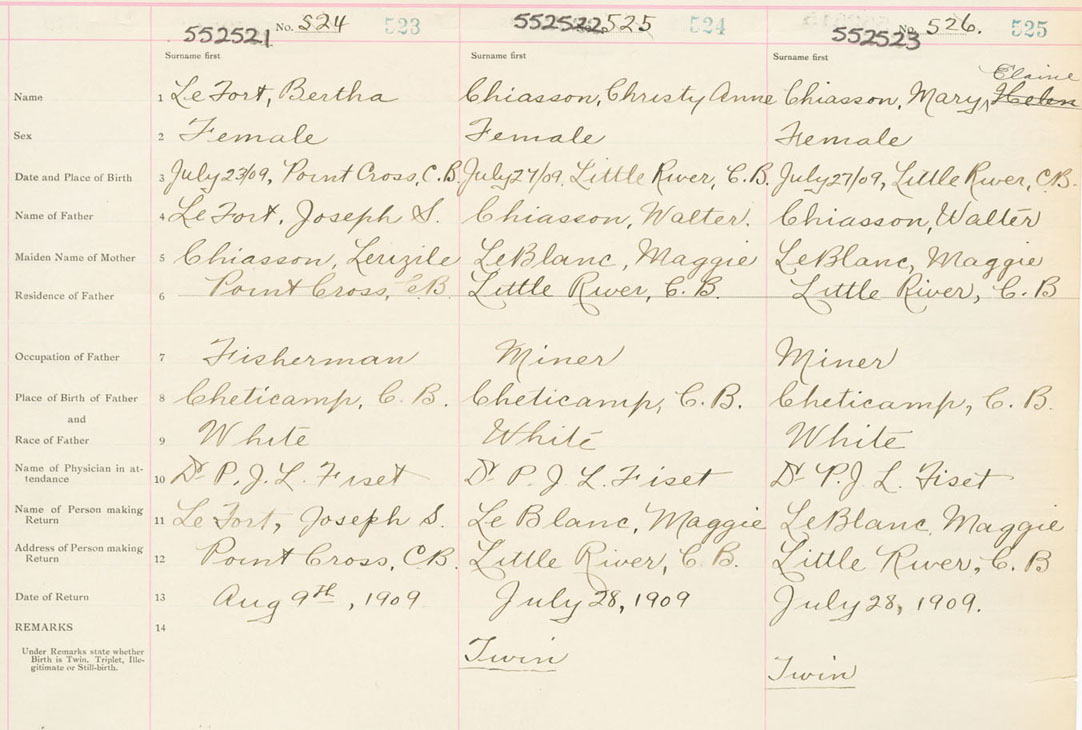 No. 524 523 525 524 No. 526. 525
552521 552522 552523
Surname first Surname first Surname first
Elaine
Name 1 Le Fort, Bertha Chiasson, Christy Anne Chiasson, Mary, Helen
Sex 2 Female Female Female
Date and Place of Birth 3 July 23/09, Point Cross, C.B. July 27/09, Little River, C.B. July 27/09, Little River, C.B.
Name of Father 4 Le Fort, Joseph S. Chiasson, Walter. Chiasson, Walter
Maiden Name of Mother 5 Chiasson, LeBlanc, Maggie LeBlanc, Maggie
Residence of Father 6 Point Cross, C.B. Little River, C.B. Little River, C.B
Occupation of Father 7 Fisherman Miner Miner
Place of Birth of Father 8 Cheticamp, C.B. Cheticamp, C.B. Cheticamp, C.B.
and
Race of Father 9 White White White
Name of Physician in at-
tendance 10 Dr P.J.L. Fiset Dr P.J.L. Fiset Dr P.J.L. Fiset
Name of Person making
Return 11 Le Fort, Joseph S. Le Blanc, Maggie LeBlanc, Maggie
Address of Person making
Return 12 Point Cross, C.B. Little River, C.B. Little River, C.B
Date of Return 13 Aug 9th, 1909 July 28, 1909 July 28, 1909.
REMARKS 14
Under Remarks state whether
Birth is Twin, Triplet, Ille-
gitimate or Still-birth.
Twin
Twin